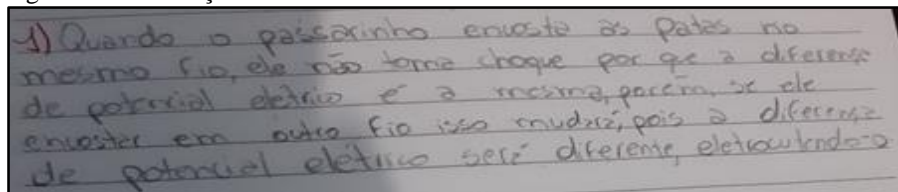 1) Quando o passarinho encosta as patas no
mesmo fio, ele não toma choque por qe a diferença
de potencial eletrico é a mesma, porém, se ele
encostar em outro fio isso mudará, pois a diferença
de potencial elétrico será diferente, eletrocutando-o